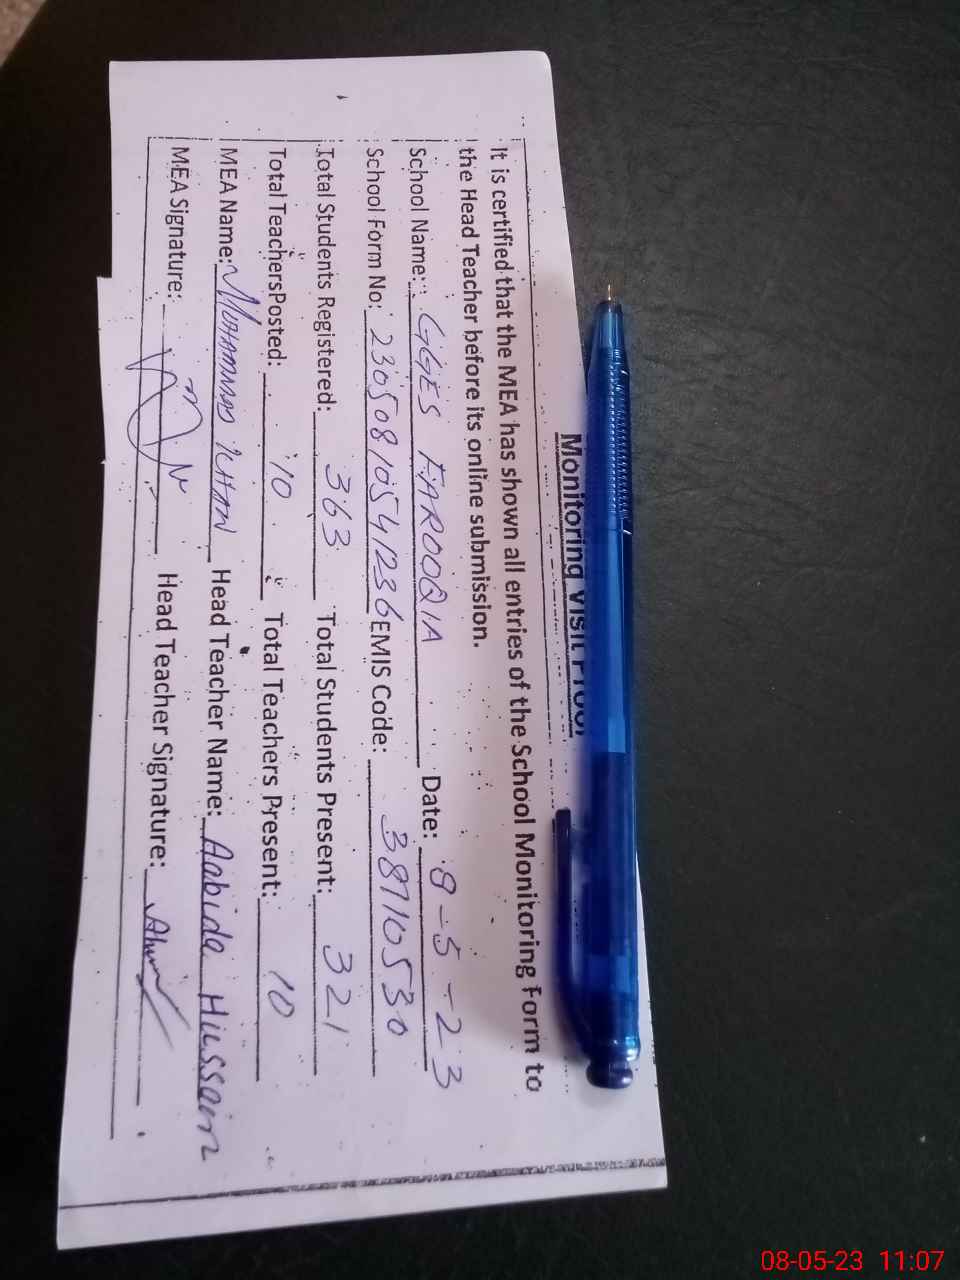 Monitoring Visit Proof
It is certified that the MEA has shown all entries of the School Monitoring Form to
the Head Teacher before its online submission.
School Name: GGES FAROOQIA Date: 8-5-23
School Form No: 230508105541236 EMIS Code: 38710530
Total Students Registered: 363 Total Students Present: 321
Total TeachersPosted: 10 Total Teachers Present: 10
MEA Name: MOHAMMAD Head Teacher Name: Aabida Hussain
MEA Signature: Head Teacher Signature:
08-05-23 11:07